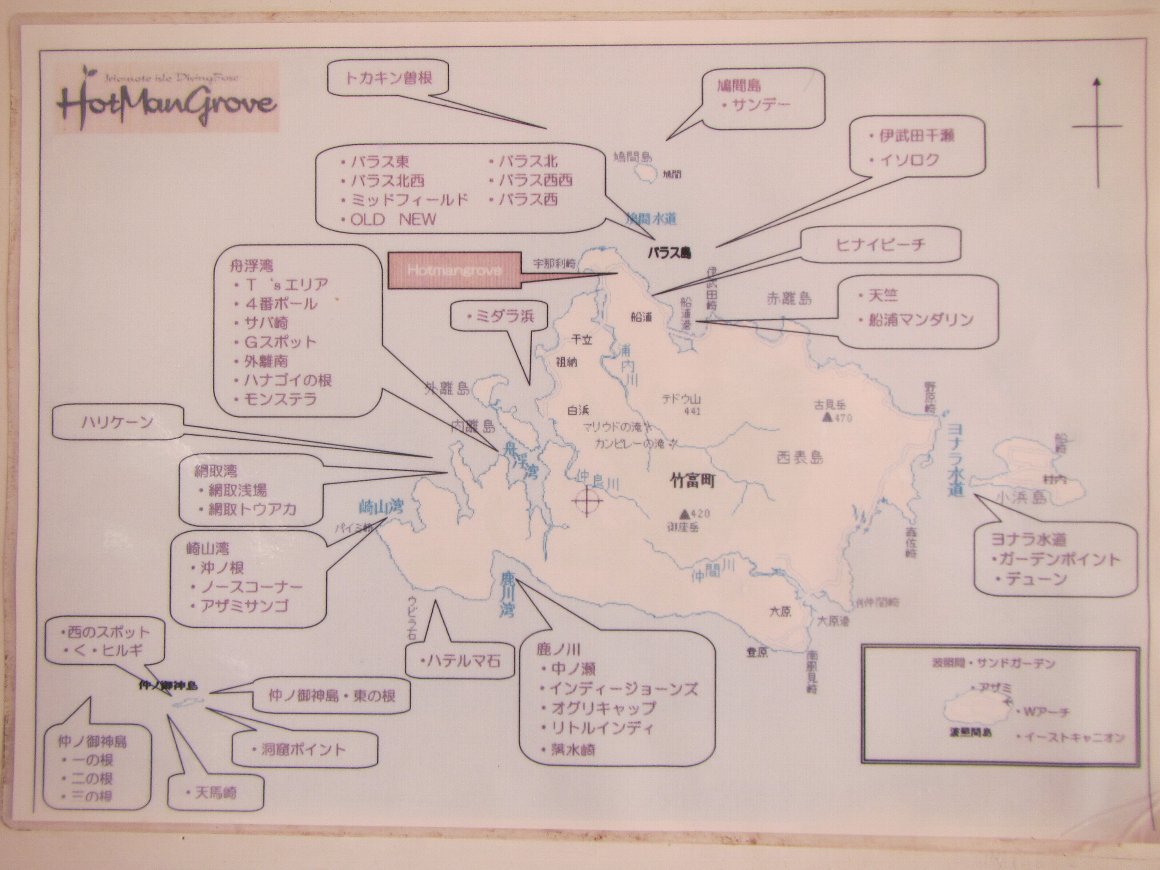 Iriomote isle DivingBase
HotManGrove
トカキン曽根
鳩間島
・サンデー
・伊武田干瀬
・イソロク
・バラス東
・バラス北
・バラス北西
・バラス西西
・ミッドフィールド
・バラス西
・OLD NEW
鳩間島
鳩間
鳩間水道
バラス島
ヒナイビーチ
舟浮湾
・T'sエリア
・4番ポール
・サバ崎
・Gスポット
・外離南
・ハナゴイの根
・モンステラ
Hotmangrove
宇那利崎
・ミダラ浜
伊武田崎
船浦港
赤離島
・天竺
・船浦マンダリン
船浦
干立
祖納
浦内川
外離島
内離島
白浜
テドウ山
441
マリウドの滝
カンピレーの滝
古見岳
▲470
野原崎
ヨナラ水道
船崎
村内
小浜島
西表島
ハリケーン
舟浮湾
仲良川
竹富町
▲420
御座岳
網取湾
・網取浅場
・網取トウアカ
崎山湾
パイミ崎
崎山湾
・沖ノ根
・ノースコーナー
・アザミサンゴ
ヨナラ水道
・ガーデンポイント
・デューン
仲間川
鹿川湾
ウビラ石
大原
大原港
豊原
南風見崎
・西のスポット
・く・ヒルギ
・ハテルマ石
鹿ノ川
・中ノ瀬
・インディージョーンズ
・オグリキャップ
・リトルインディ
・落水崎
仲ノ御神島
仲ノ御神島・東の根
・洞窟ポイント
仲ノ御神島
・一の根
・二の根
・三の根
・天馬崎
波照間・サンドガーデン
・アザミ
・Wアーチ
波照間島
・イーストキャニオン